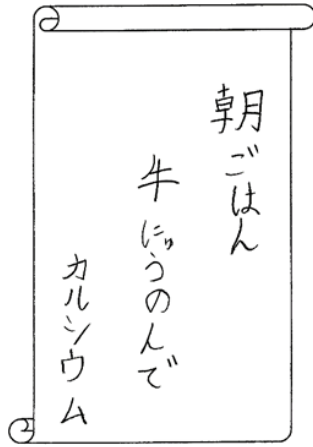 朝ごはん
牛にゅうのんで
カルシウム